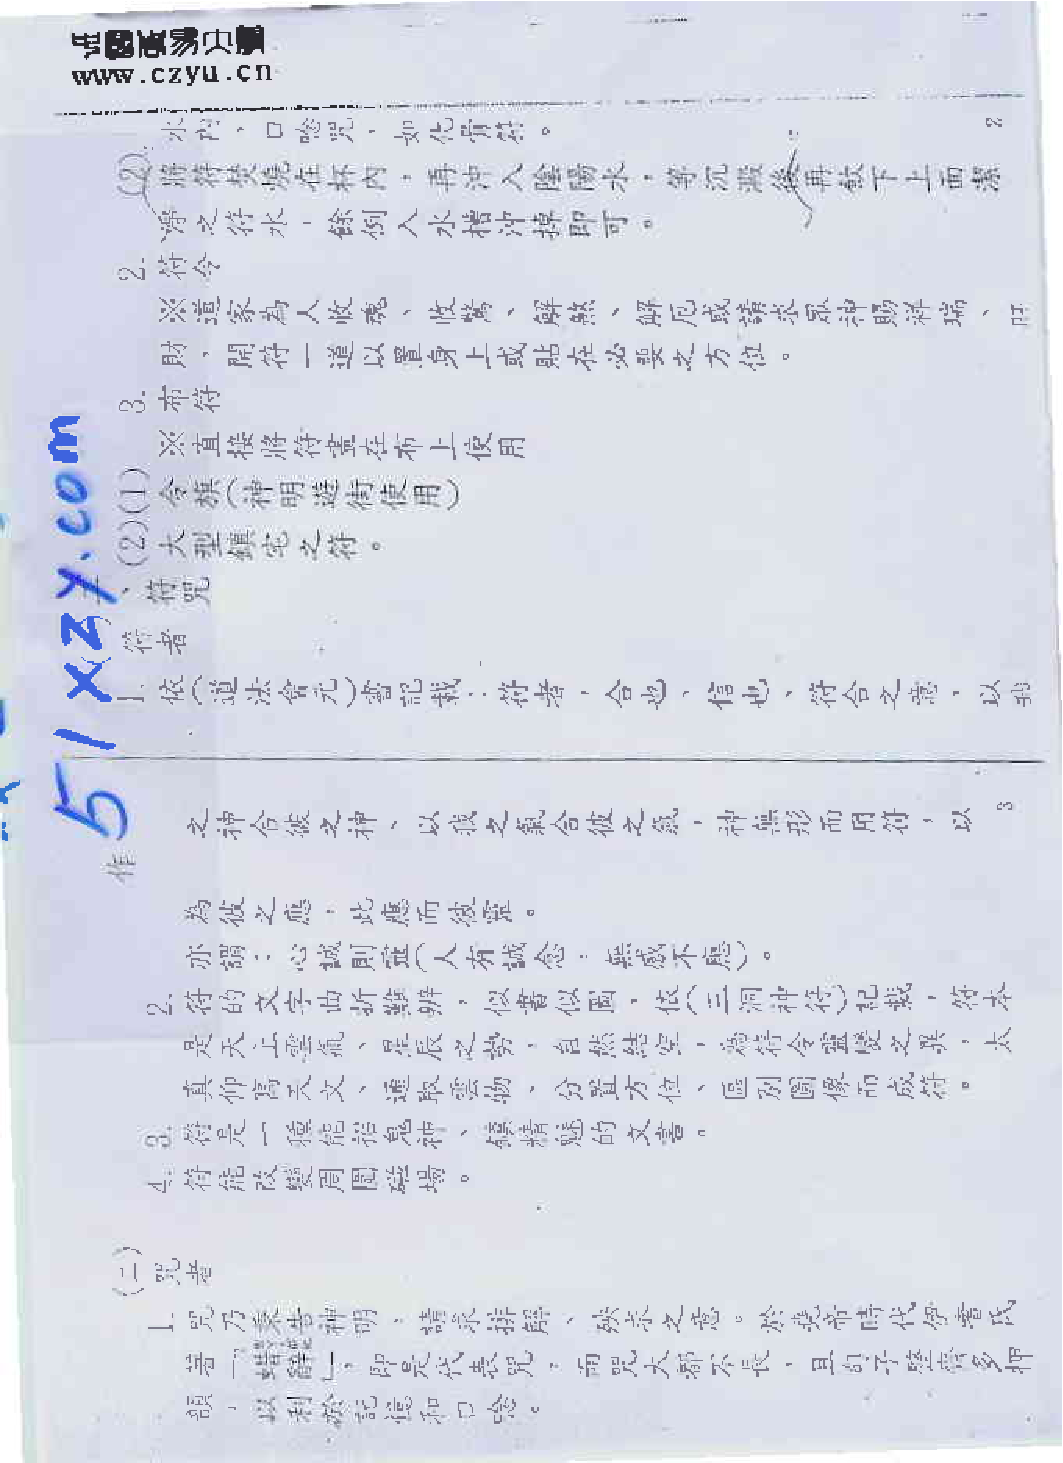 www.czyu.cn
2
水內，口唸咒，如化骨符。
(2)將符焚燒在杯內，再沖入陰陽水，等沉澱後再飲下上面潔
淨之符水，餘倒入水槽沖掉即可。
2. 符令
※道家為人收魂、收驚、解煞、解厄或請求眾神賜祥瑞、
財，開符一道以置身上或貼在必要之方位。
3. 布符
※直接將符畫在布上使用
(1)令旗(神明遊街使用)
(2)大型鎮宅之符。
、符咒
符者
1. 依(道法會元)書記載：符者，合也，信也，符合之意，以我
51xzy.com
3
之神合彼之神，以我之氣合彼之氣，神無形而用符，以
作
為彼之應，此應而彼靈。
亦謂：心誠則靈(人有誠念，無感不應)。
2. 符的文字曲折難辨，似書似圖，依(三洞神符)記載，符本
是天上雲氣、星辰之勢，自然結空，為符令靈變之異，太
真仰寫天文、通取雲物、分置方位、區別圖像而成符。
3. 符是一種能治鬼神、鎮精魅的文書。
4. 符能改變周圍磁場。
(二)咒者
1. 咒乃奏告神明，請求排解、祓求之意。於炎帝時代伊耆氏
著「蜡辭」，即是代表咒，而咒大都不長，且句子整齊多押
韻，以利於記憶和口唸。